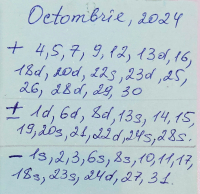 Octombrie, 2024
+ 4,5,7, 9, 12, 13d, 16,
18d, 20d, 22s, 23d, 25,
26, 28d, 29, 30
± 1d, 6d, 8d, 13s, 14, 15,
19, 20s, 21, 22d, 24s, 28s.
- 1s, 2, 3, 6s, 8s, 10, 11, 17,
18s, 23s, 24d, 27, 31.